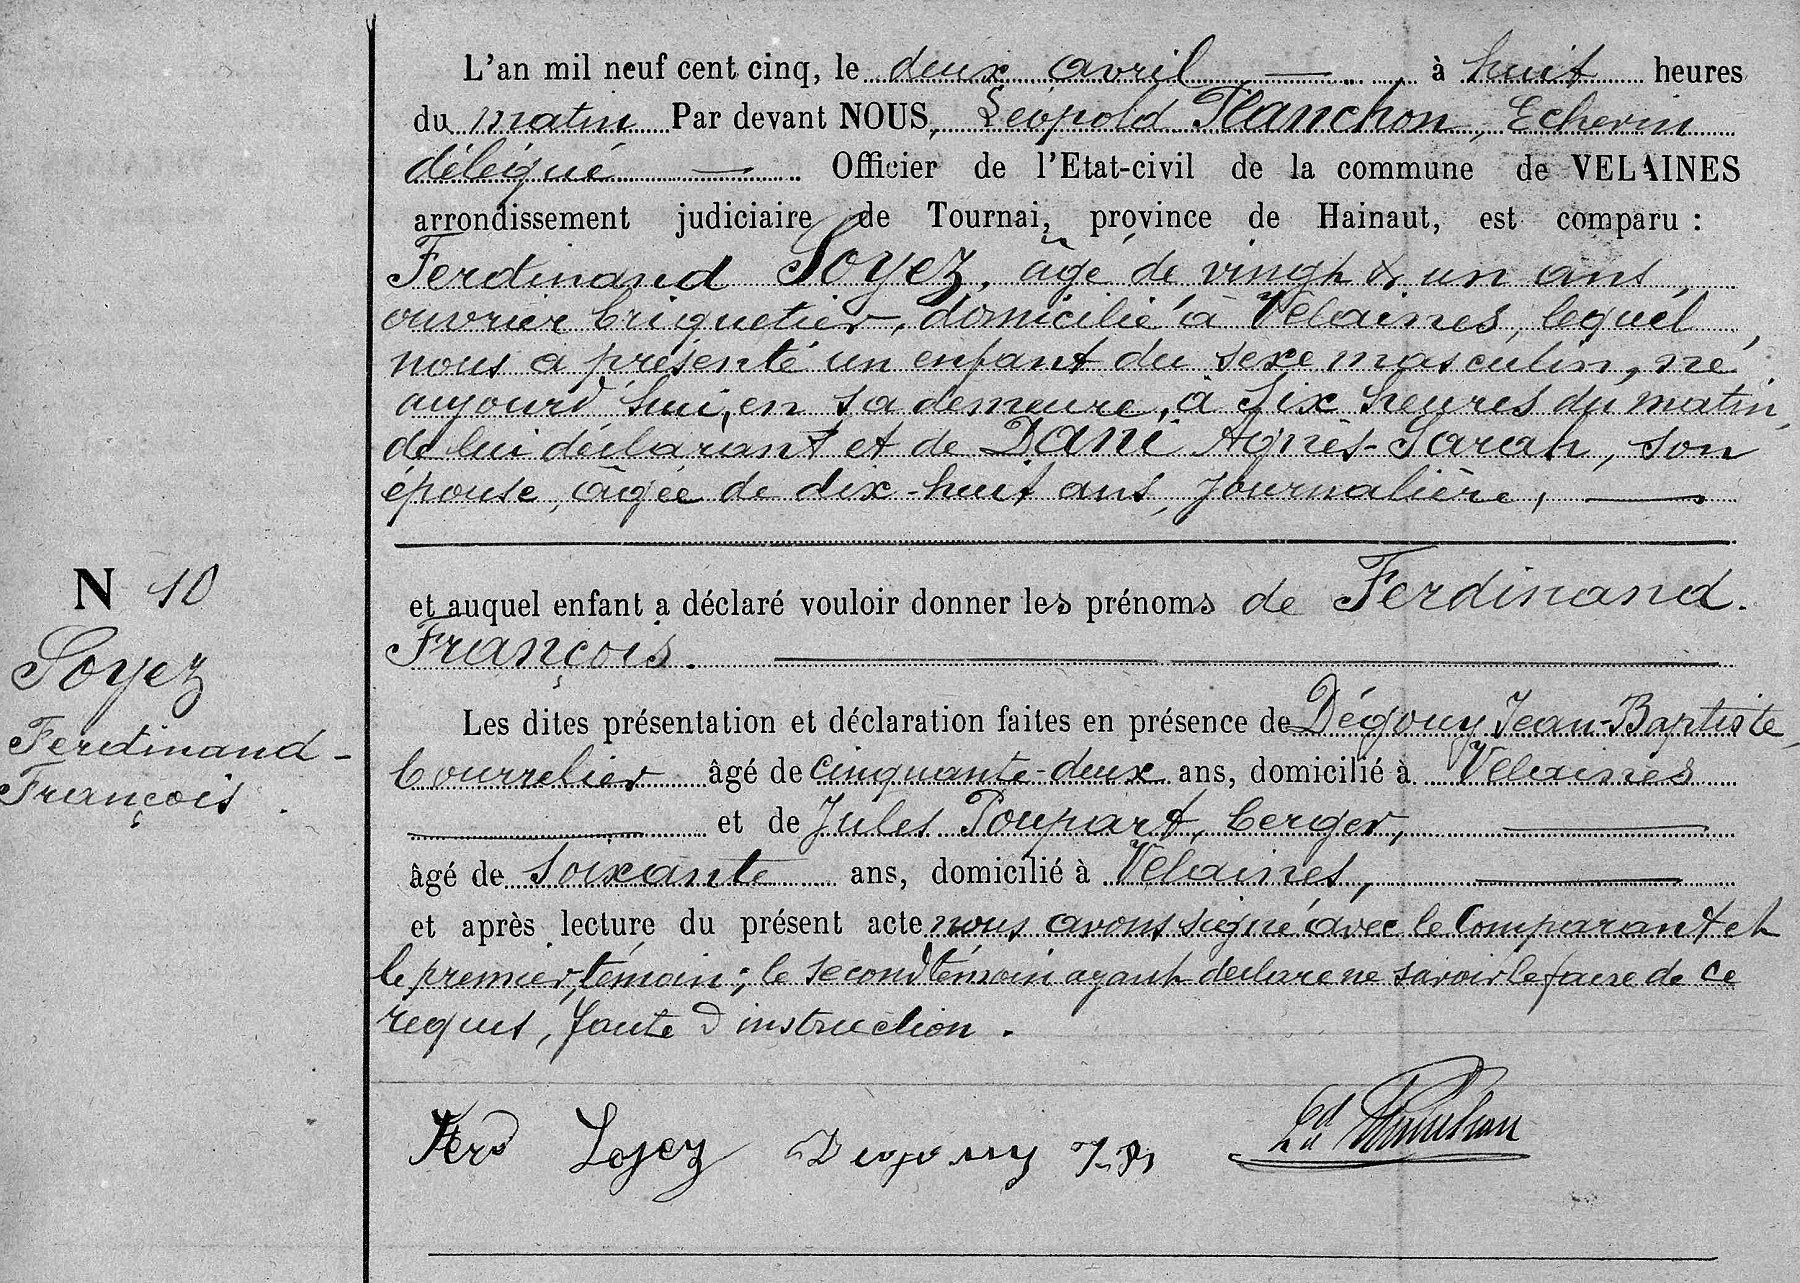 L'an mil neuf cent cinq, le deux avril — à huit heures
du matin Par devant NOUS, Léopold Planchon, Echevin
délégué — Officier de l'Etat-civil de la commune de VELAINES
arrondissement judiciaire de Tournai, province de Hainaut, est comparu :
Ferdinand Soyez, âgé de vingt & un ans,
ouvrier briquetier, domicilié à Velaines, lequel
nous a présenté un enfant du sexe masculin, né
aujourd'hui, en sa demeure, à six heures du matin,
de lui déclarant et de Dané Agnès-Sarah, son
épouse, âgée de dix-huit ans, journalière, —
N 10
Soyez
Ferdinand-
François.
et auquel enfant a déclaré vouloir donner les prénoms de Ferdinand.
François. —
Les dites présentation et déclaration faites en présence de Dégouy Jean-Baptiste,
bourrelier âgé de cinquante-deux ans, domicilié à Velaines
— et de Jules Poupart, berger, —
âgé de soixante ans, domicilié à Velaines, —
et après lecture du présent acte nous avons signé avec le Comparant et
le premier témoin ; le second témoin ayant déclaré ne savoir le faire de ce
requis, faute d'instruction.
Ferd Soyez Degouy J-B Ld Planchon